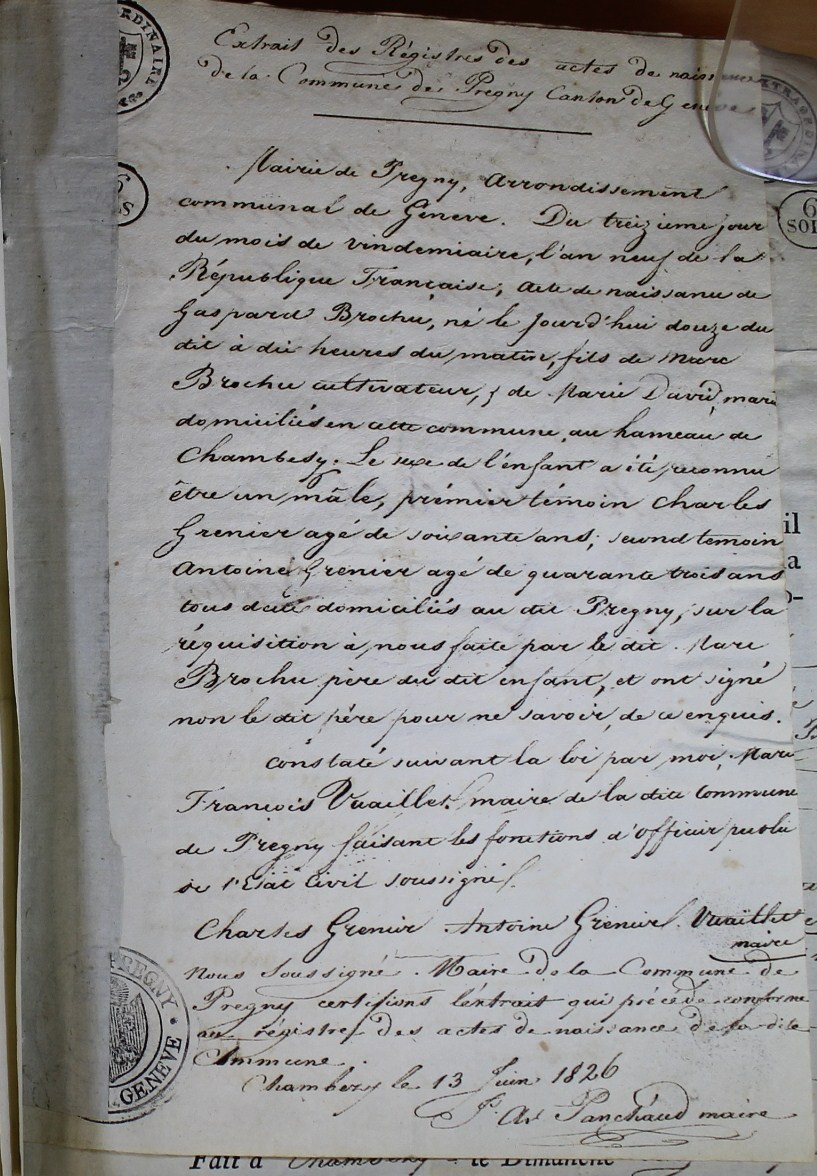 Extrait des Régistres des actes de naissance
de la Commune de Pregny Canton de Geneve
Mairie de Pregny, Arrondissement
communal de Geneve. Du treizieme jour
du mois de vindemiaire, l'an neuf de la
République Francaise, Acte de naissance de
Gaspard Brochu, né le Jourd'hui douze du
dit à dix heures du matin, fils de Marc
Brochu cultivateur, & de Marie David, marié
domiciliés en cette commune, au hameau de
Chambesy. Le sexe de l'enfant a été reconnu
être un mâle, prémier témoin Charles
Grenier agé de soixante ans; second temoin
Antoine Grenier agé de quarante trois ans
tous domiciliés au dit Pregny, sur la
réquisition à nous faite par le dit Marc
Brochu père du dit enfant, et ont signé
non le dit père pour ne savoir, de ce enquis.
Constaté suivant la loi par moi, Marc
François Vuaillet maire de la dite Commune
de Pregny faisant les fonctions d'Officier public
de l'Etat Civil soussigné.
Charles Grenier Antoine Grenier Vuaillet
maire
Nous Soussigné Maire de la Commune de
Pregny certifions l'extrait qui précéde conforme
au régistre des actes de naissance de la dite
Commune.
Chambezy le 13 Juin 1826
Panchaud maire
ORDINAIRE
6
SOLS
PREGNY
GENEVE
il
a
Fait à Chambezy le Dimanche